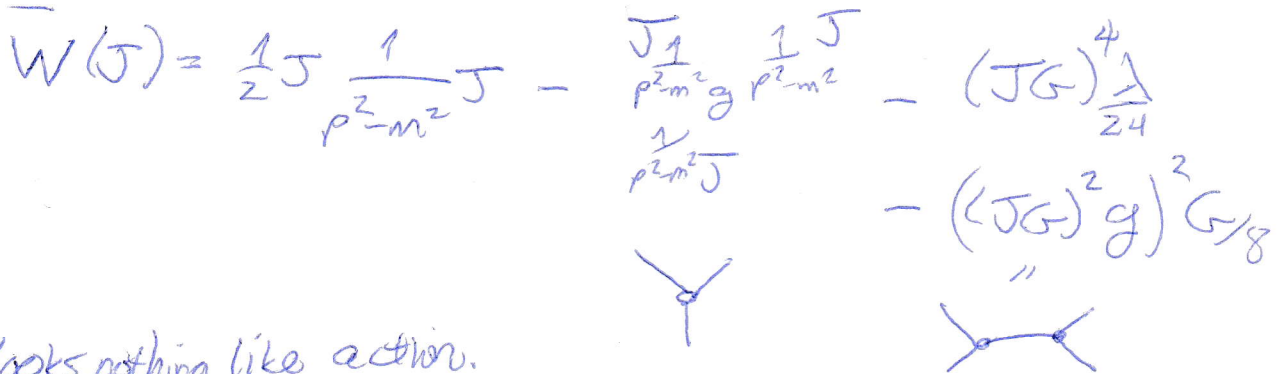 W̅(J) = 1/2 J 1/(p²-m²) J - J 1/(p²-m²) g 1/(p²-m²) J 1/(p²-m²) J - (JG)⁴ λ/24
- ((JG)² g)² G/8
"
looks nothing like action.